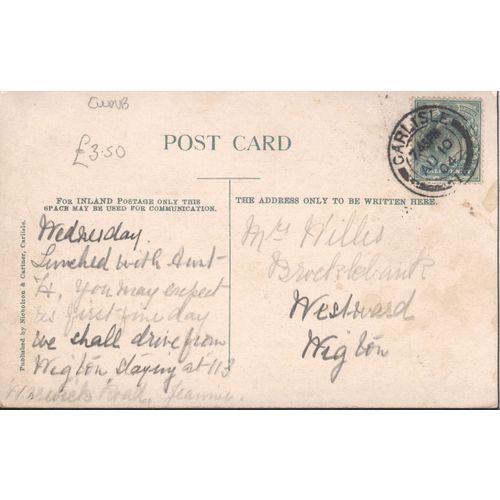 £3.50
POST CARD
CARLISLE
AU 10
04
FOR INLAND POSTAGE ONLY THIS
SPACE MAY BE USED FOR COMMUNICATION.
THE ADDRESS ONLY TO BE WRITTEN HERE.
Published by Nicholson & Cartner, Carlisle.
Wednesday.
Lunched with Aunt
H, you may expect
us first fine day
we shall drive from
Wigton staying at 113
Warwick Road, Jeannie.
Mrs Willis
Brocklebank
Westward
Wigton